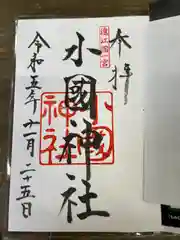 奉拝
遠江國一宮
小國神社
小國神社
令和五年十一月二十五日